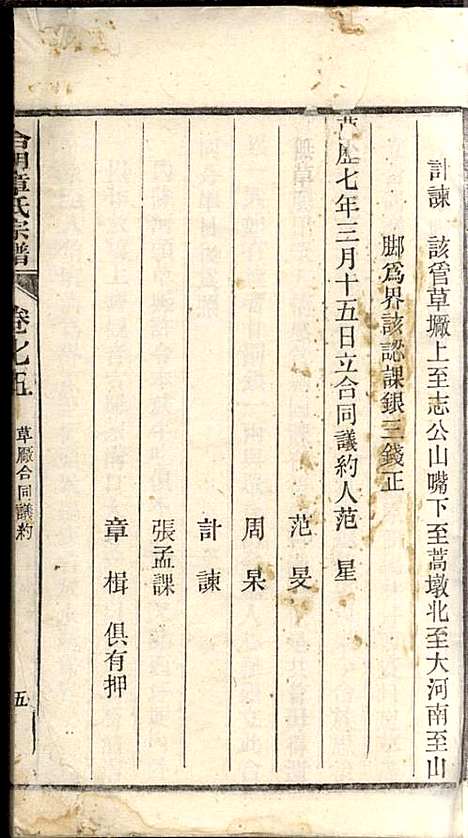 計諫　該管草塲上至志公山嘴下至蒿墩北至大河南至山
脚爲界該認課銀三錢正
萬歷七年三月十五日立合同議約人范　星
范　旻
周　杲
計　諫
張孟課
章　楫　俱有押
章氏宗譜
卷之五
草厰合同議約
五